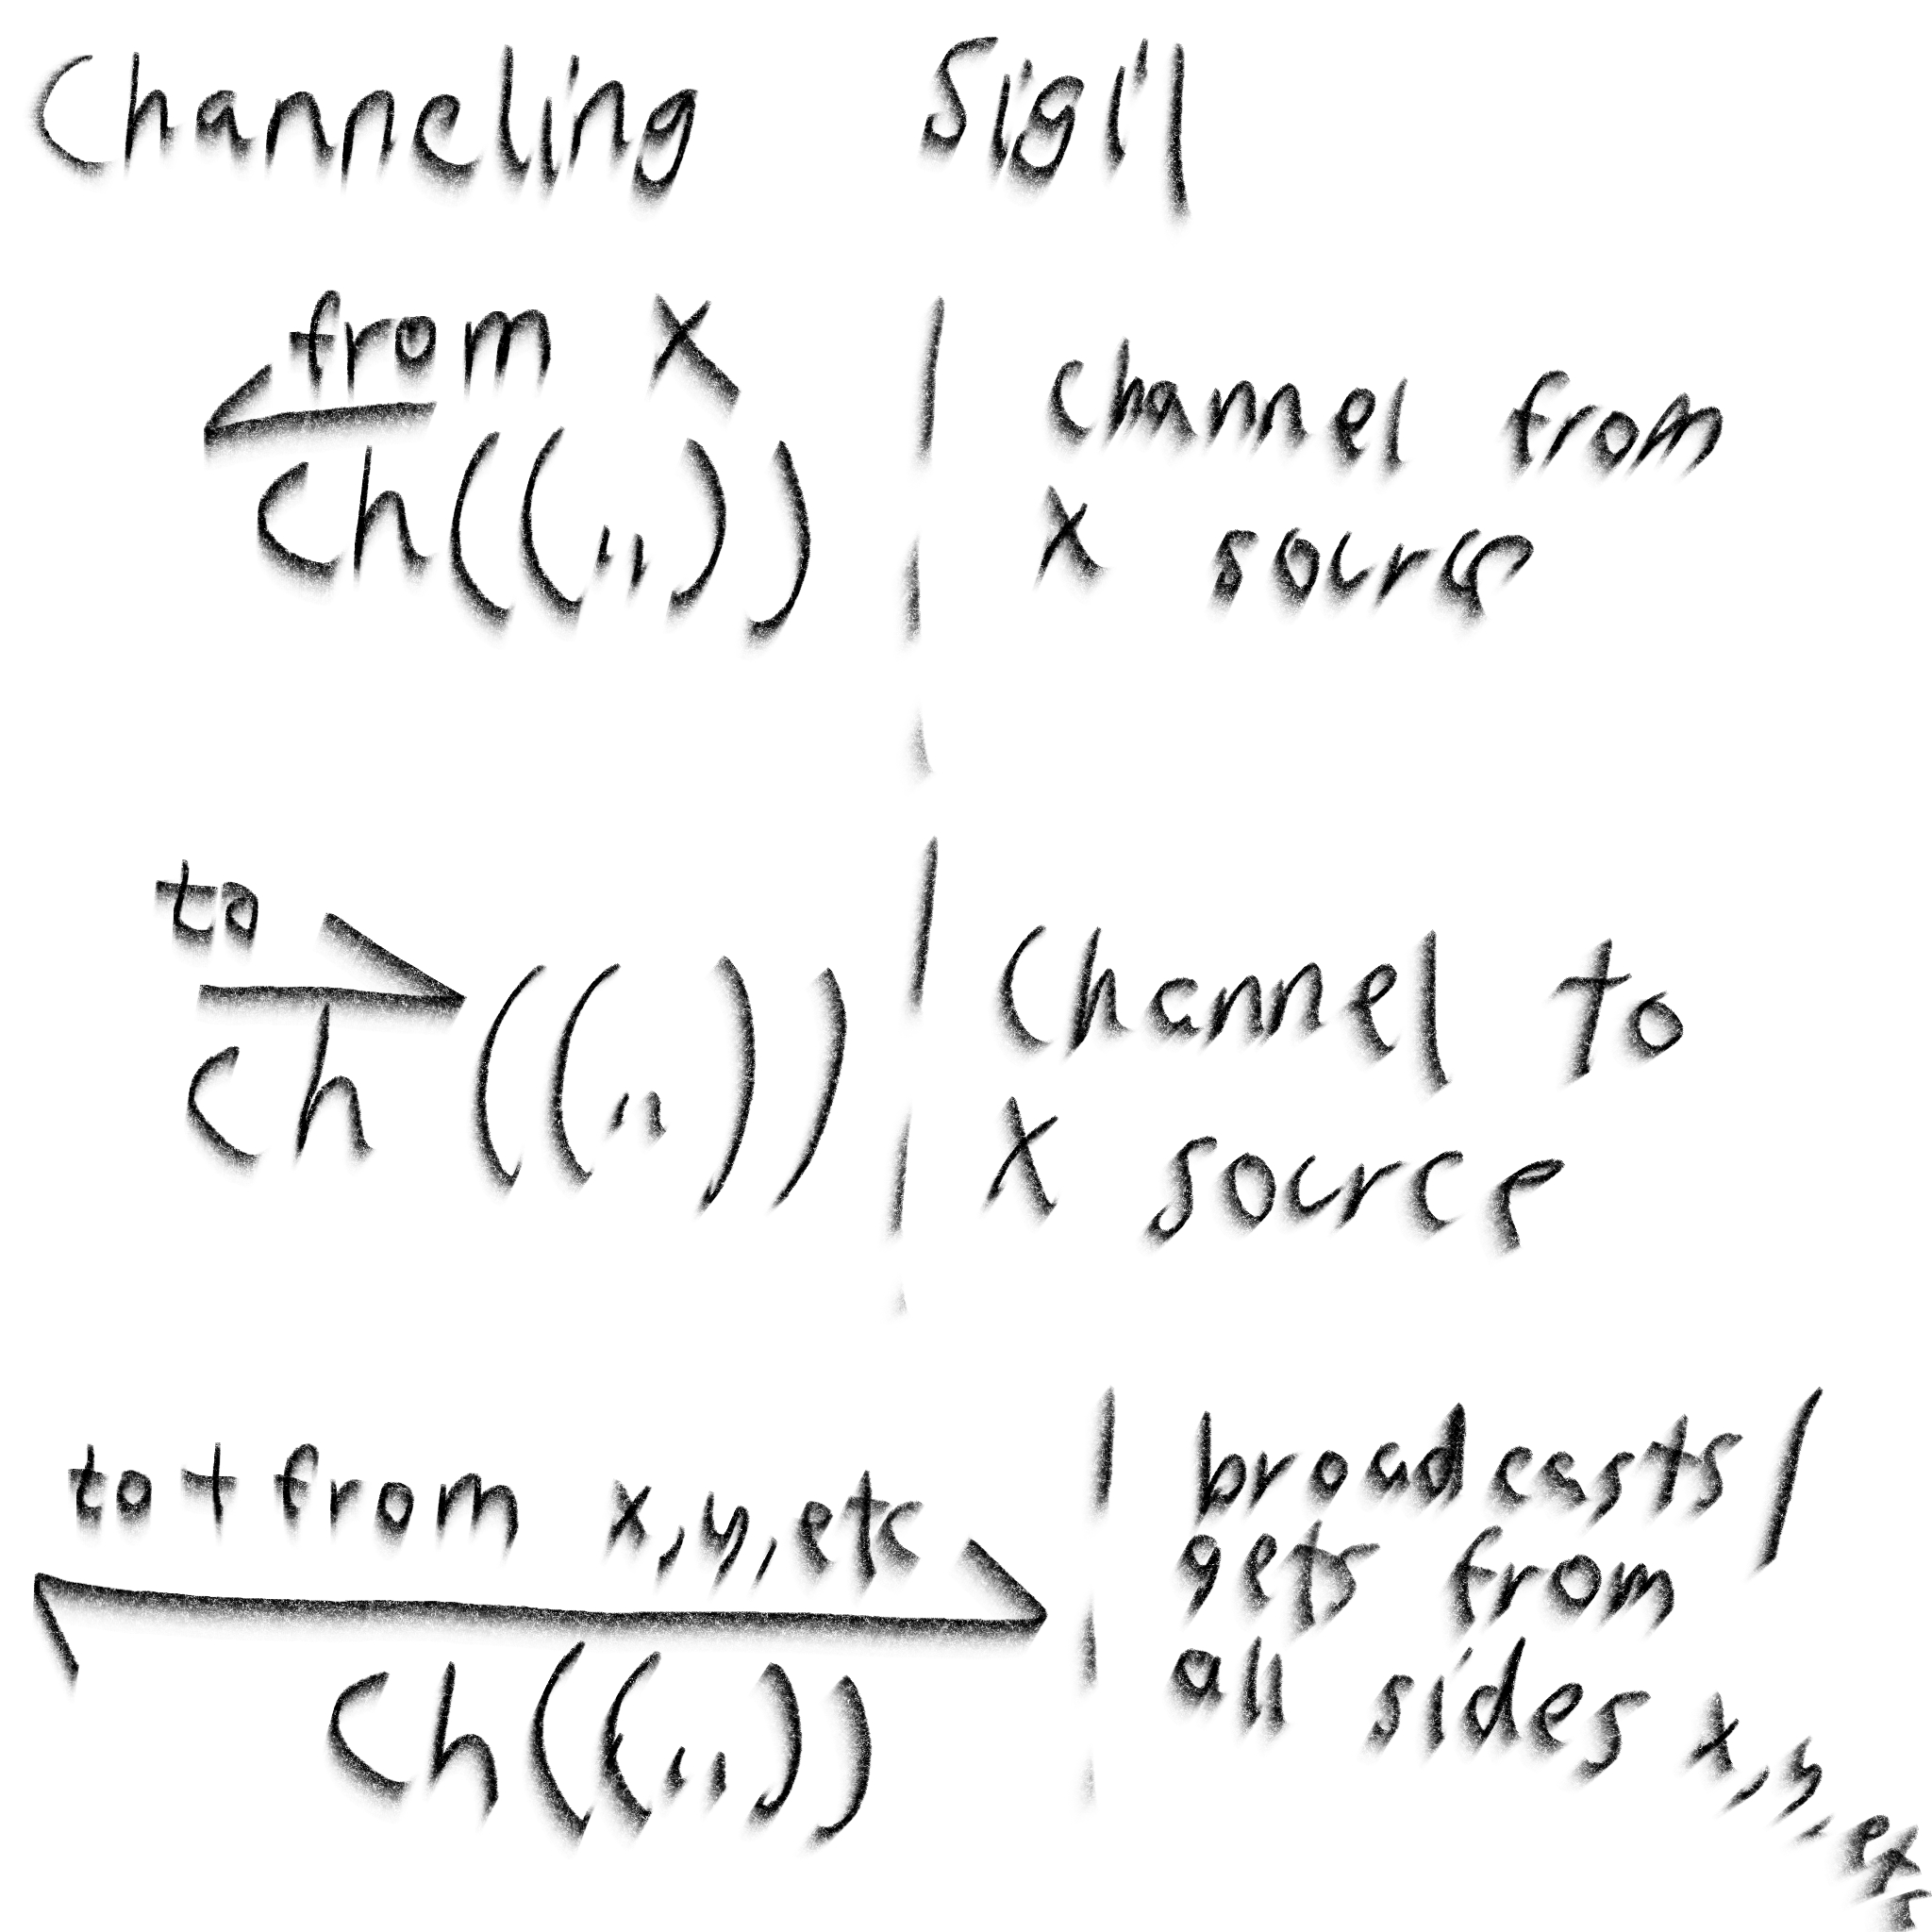 Channeling Sigil
from x
ch((,,))
channel from
x source
to
ch((,,))
Channel to
X source
to + from x,y,etc
ch((,,))
broadcasts/
gets from
all sides x,y,etc